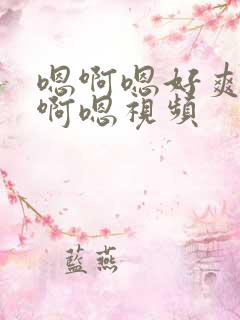 嗯啊嗯好爽
啊嗯視頻
藍燕